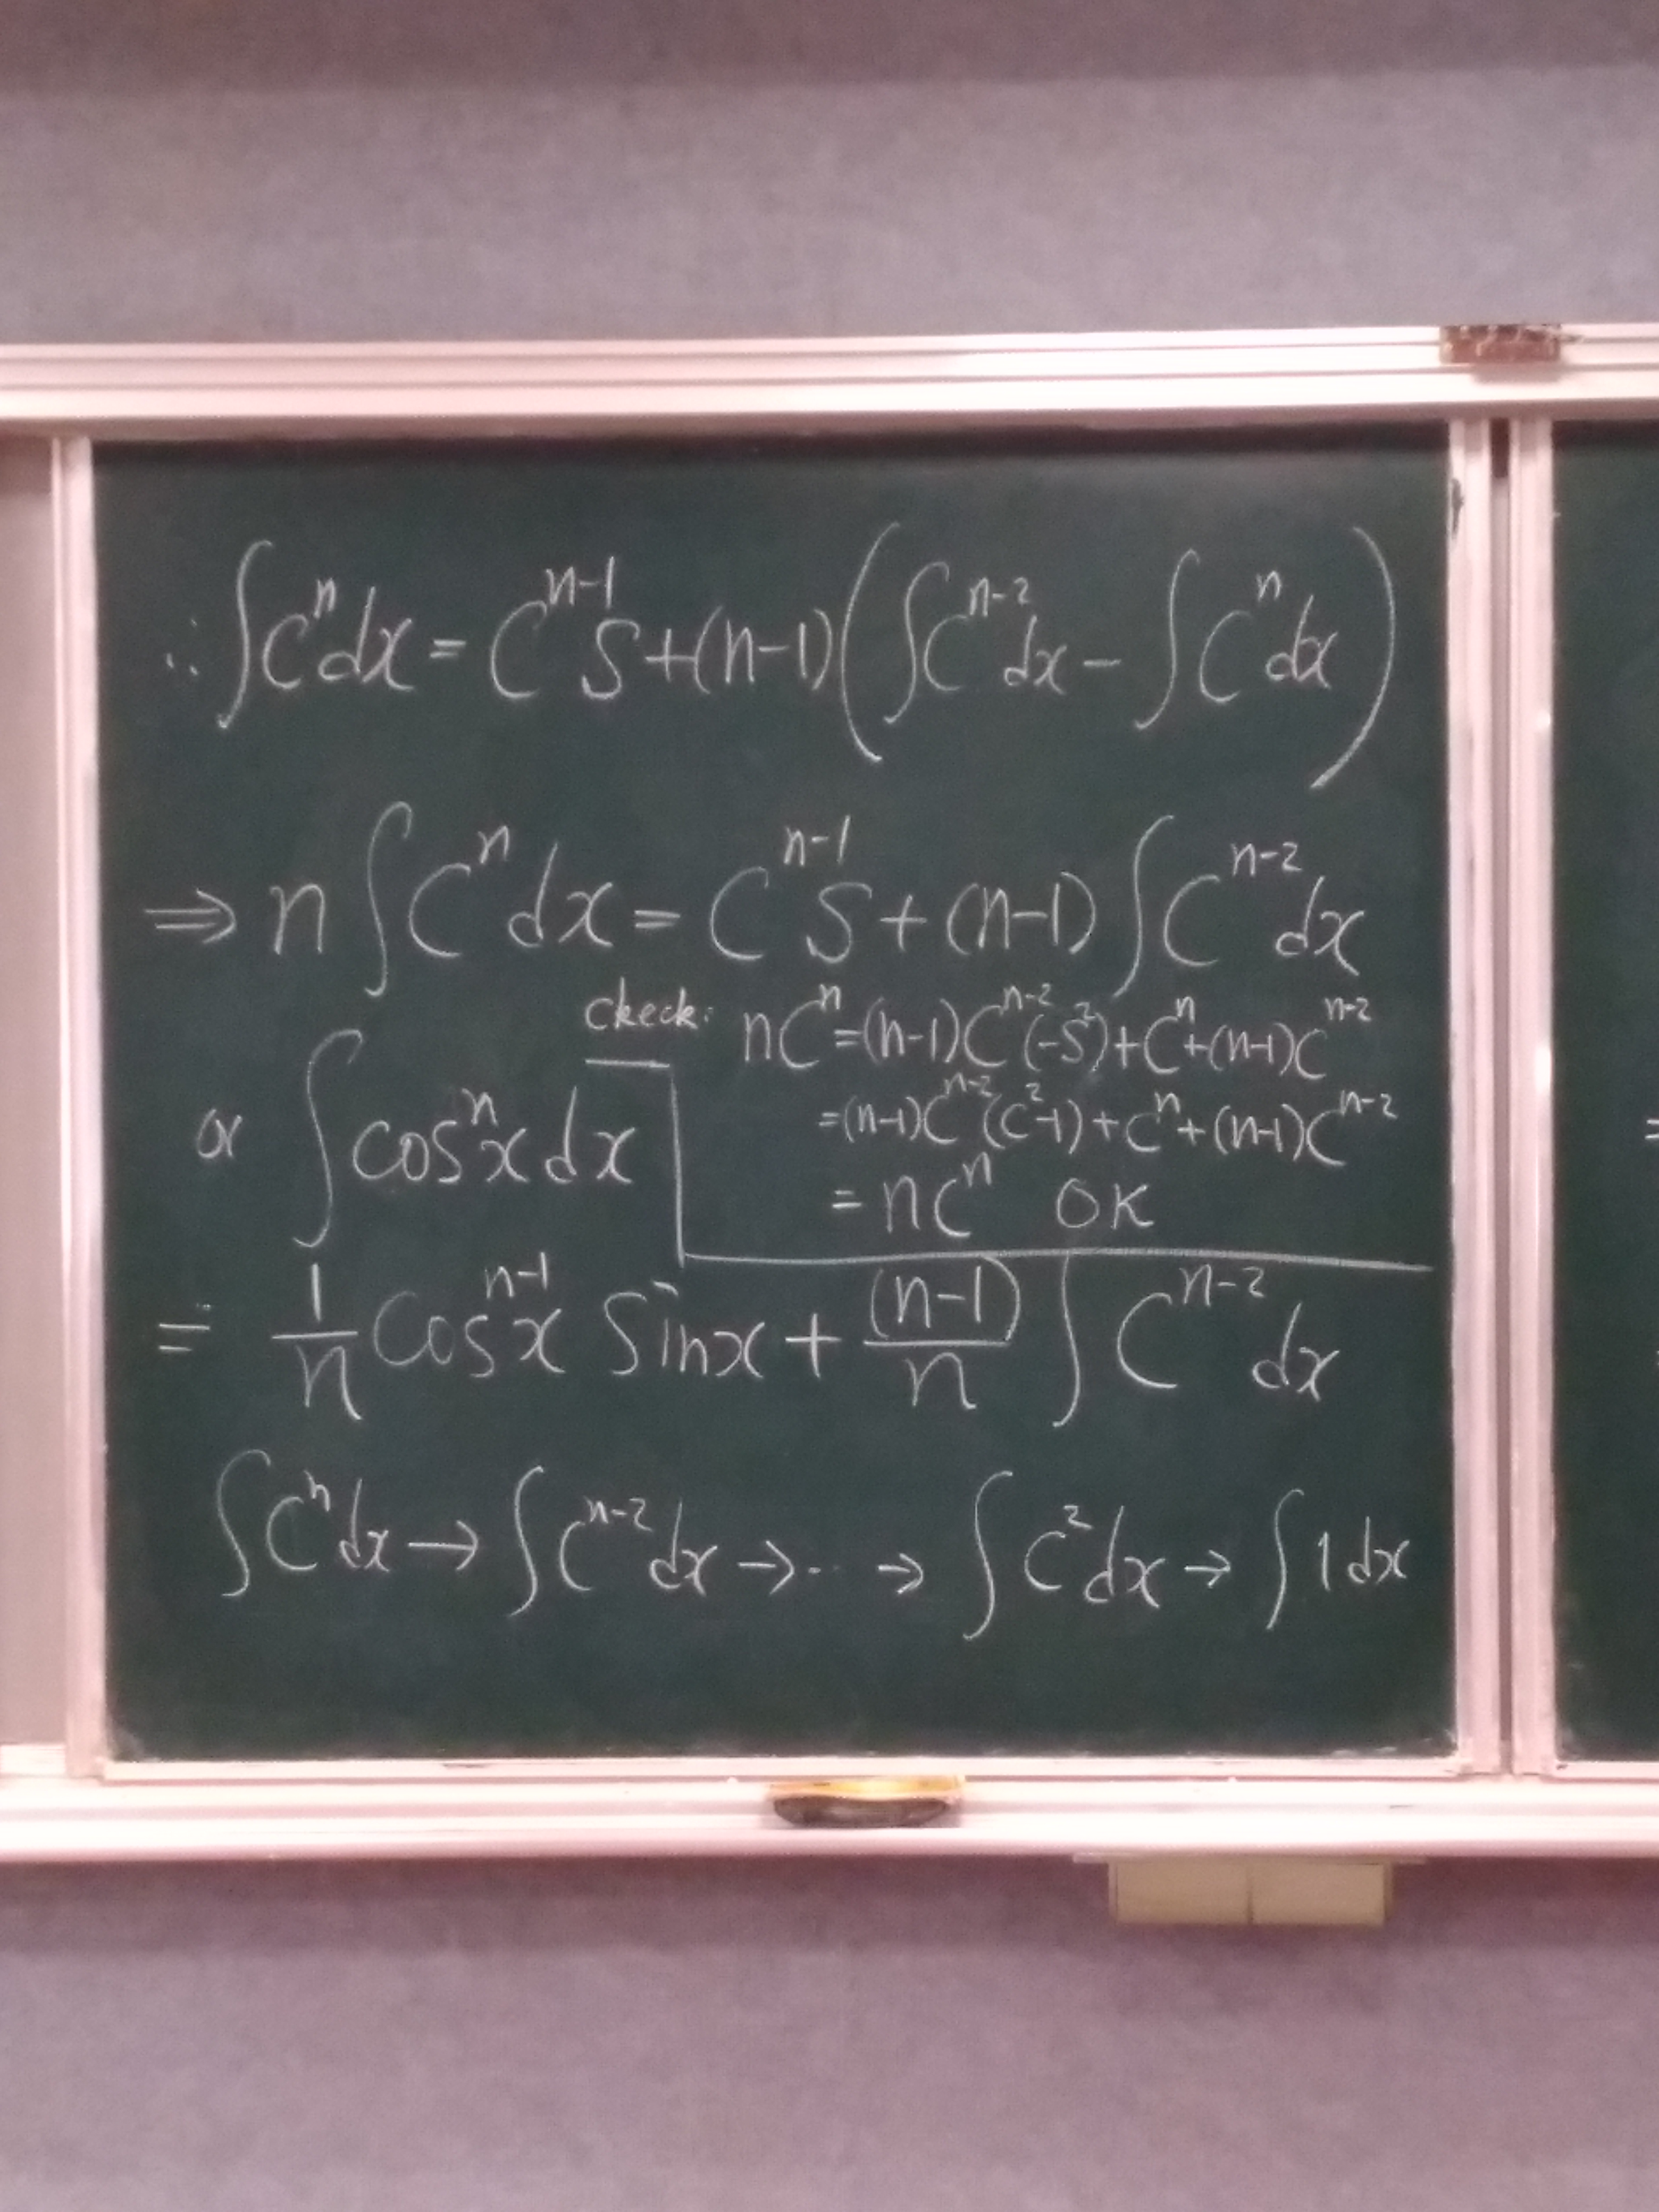 ∴ ∫Cⁿdx = Cⁿ⁻¹S + (n-1)(∫Cⁿ⁻²dx - ∫Cⁿdx)
⇒ n∫Cⁿdx = Cⁿ⁻¹S + (n-1)∫Cⁿ⁻²dx
check: nCⁿ = (n-1)Cⁿ⁻²(-S²) + Cⁿ + (n-1)Cⁿ⁻²
= (n-1)Cⁿ⁻²(C²-1) + Cⁿ + (n-1)Cⁿ⁻²
= nCⁿ OK
or ∫cosⁿx dx
= 1/n cosⁿ⁻¹x sinx + (n-1)/n ∫Cⁿ⁻²dx
∫Cⁿdx → ∫Cⁿ⁻²dx → ... → ∫C²dx → ∫1dx